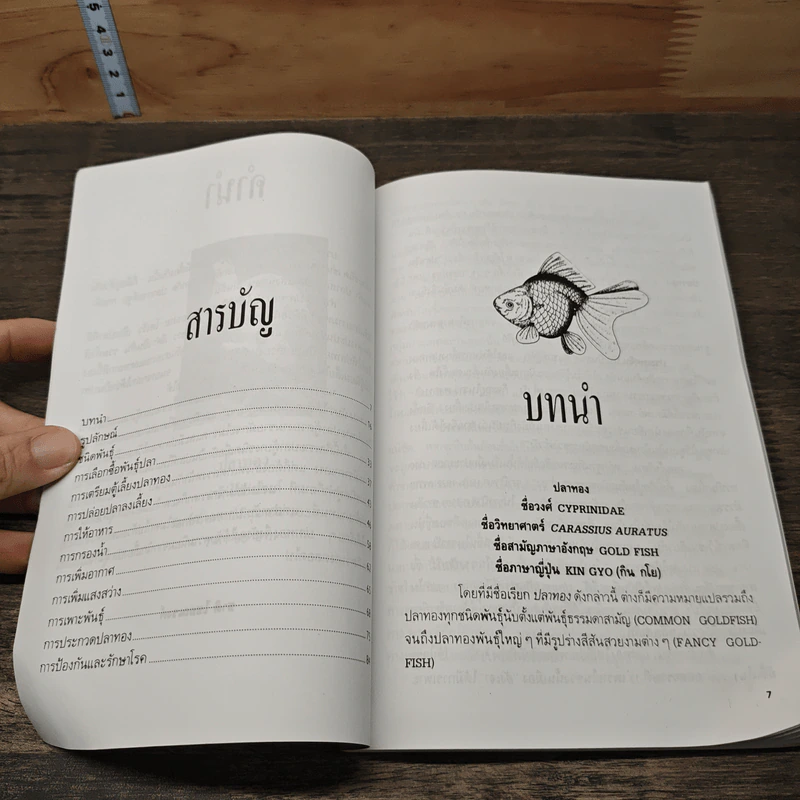 5 4 3 2 1
สารบัญ
บทนำ 7
รูปลักษณ์
ชนิดพันธุ์
การเลือกซื้อพันธุ์ปลา
การเตรียมตู้เลี้ยงปลาทอง
การปล่อยปลาลงเลี้ยง
การให้อาหาร
การกรองน้ำ
การเพิ่มอากาศ
การเพิ่มแสงสว่าง
การเพาะพันธุ์
การประกวดปลาทอง
การป้องกันและรักษาโรค
บทนำ
ปลาทอง
ชื่อวงศ์ CYPRINIDAE
ชื่อวิทยาศาตร์ CARASSIUS AURATUS
ชื่อสามัญภาษาอังกฤษ GOLD FISH
ชื่อภาษาญี่ปุ่น KIN GYO (กิน กโย)
โดยที่มีชื่อเรียก ปลาทอง ดังกล่าวนี้ ต่างก็มีความหมายแปลรวมถึง
ปลาทองทุกชนิดพันธุ์นับตั้งแต่พันธุ์ธรรมดาสามัญ (COMMON GOLDFISH)
จนถึงปลาทองพันธุ์ใหญ่ ๆ ที่มีรูปร่างสีสันสวยงามต่าง ๆ (FANCY GOLD-
FISH)
7